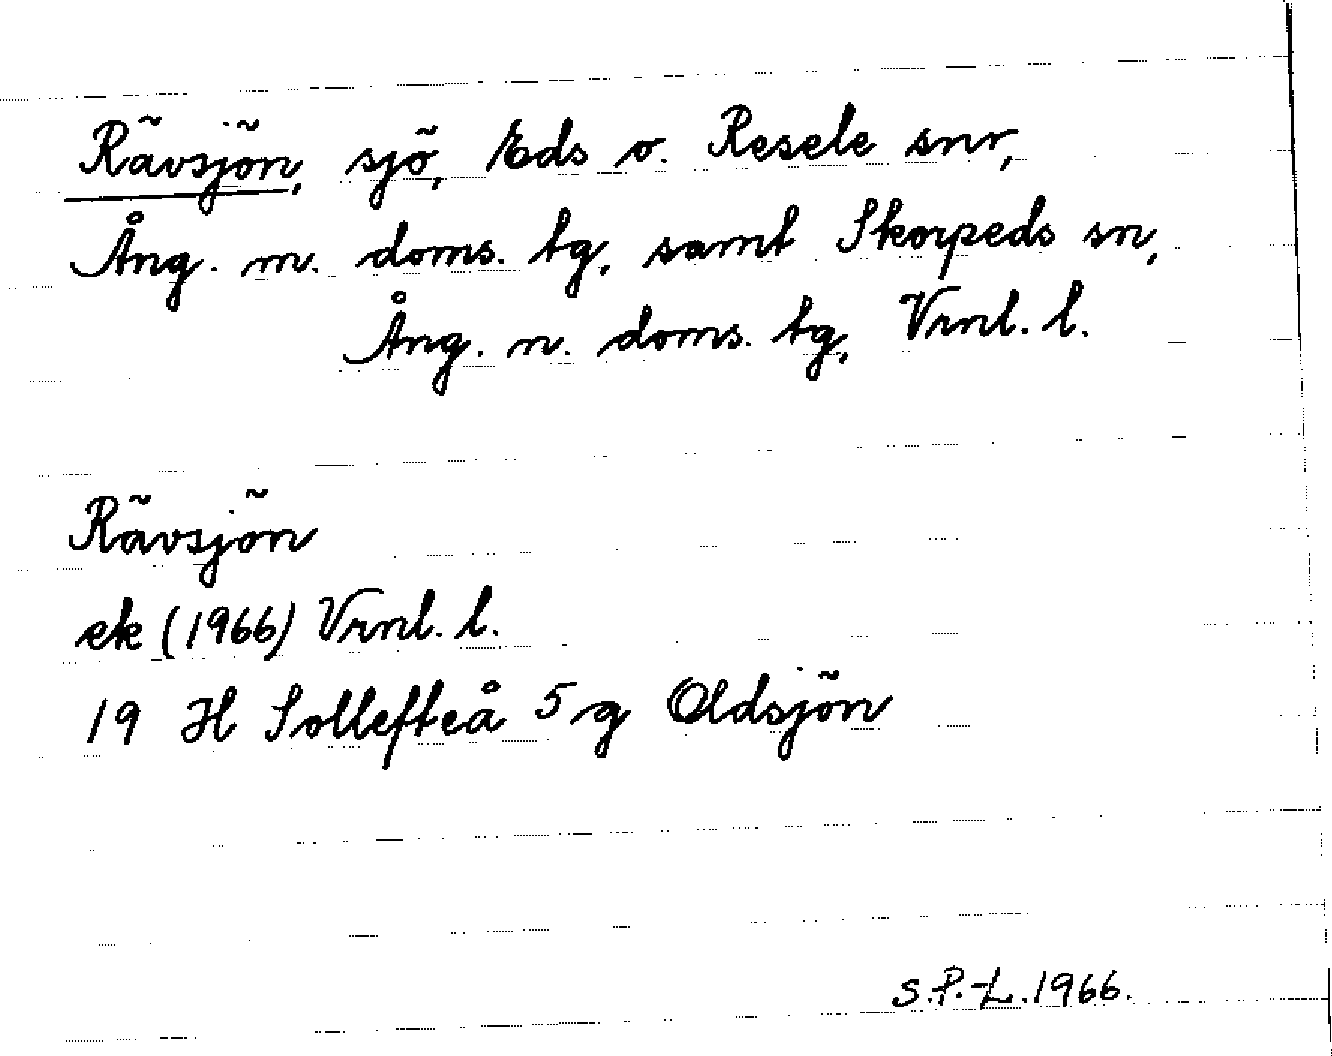 Rävsjön, sjö, Eds o. Resele snr,
Ång. m. doms. tg, samt Skorpeds sn,
Ång. n. doms. tg, Vrnl. l.
Rävsjön
ek (1966) Vrnl. l.
19 H Sollefteå 5 g Oldsjön
S.P.-L. 1966.